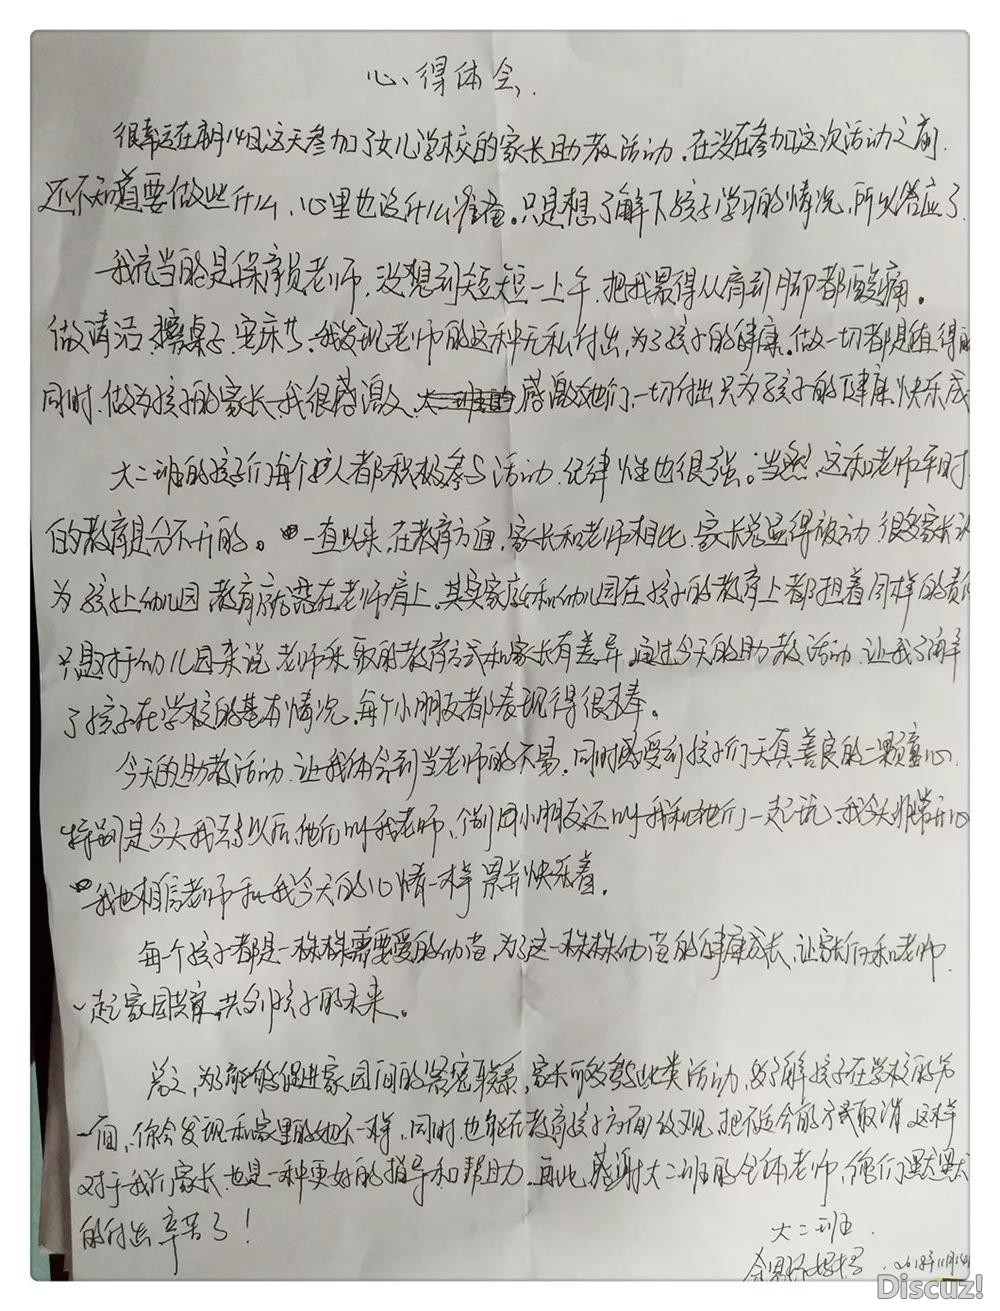 心得体会
很幸运在本月14日这天参加了女儿学校的家长助教活动,在没在参加这次活动之前
还不知道要做些什么,心里也没什么准备。只是想了解下孩子学习的情况,所以答应了
我充当的是保育员老师,没想到短短一上午,把我累得从肩到脚都酸痛。
做清洁,擦桌子,安床,我发现老师的这种无私付出,为了孩子的健康,做一切都是值得的
同时,做为孩子的家长,我很感激,感激她们,一切付出只为孩子的健康快乐成
大二班的孩子们每个人都积极参与活动,纪律性也很强。当然,这和老师平时
的教育是分不开的。一直以来,在教育方面,家长和老师相比,家长总显得被动,很多家长认
为孩子上幼儿园教育就落在老师肩上,其实家庭和幼儿园在孩子的教育上都担着同样的责任
只是对于幼儿园来说,老师采取的教育方式和家长有差异,通过今天的助教活动,让我了解
了孩子在学校的基本情况,每个小朋友都表现得很棒。
今天的助教活动,让我体会到当老师的不易,同时感受到孩子们天真善良的一颗童心,
特别是今天我去了以后,他们叫我老师,小朋友还叫我和他们一起玩,我今天非常开心
我也相信老师和我今天的心情一样,累并快乐着。
每个孩子都是一株株需要爱的幼苗,为了这一株株幼苗的健康成长,让家长们和老师
一起家园共育,共创孩子的未来。
总之,为了能够促进家园间的紧密联系,家长可多参与此类活动,多了解孩子在学校的另
一面,你会发现和家里的她不一样,同时,也能在教育孩子方面改观,把不适合的方式取消,这样
对于我们家长,也是一种更好的指导和帮助。再此,感谢大二班的全体老师,你们默默
的付出,辛苦了!
大二班
妈妈 2018年11月14日
Discuz!